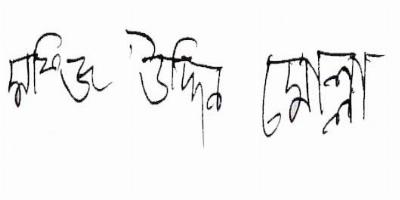 মফিজ উদ্দিন মোল্লা